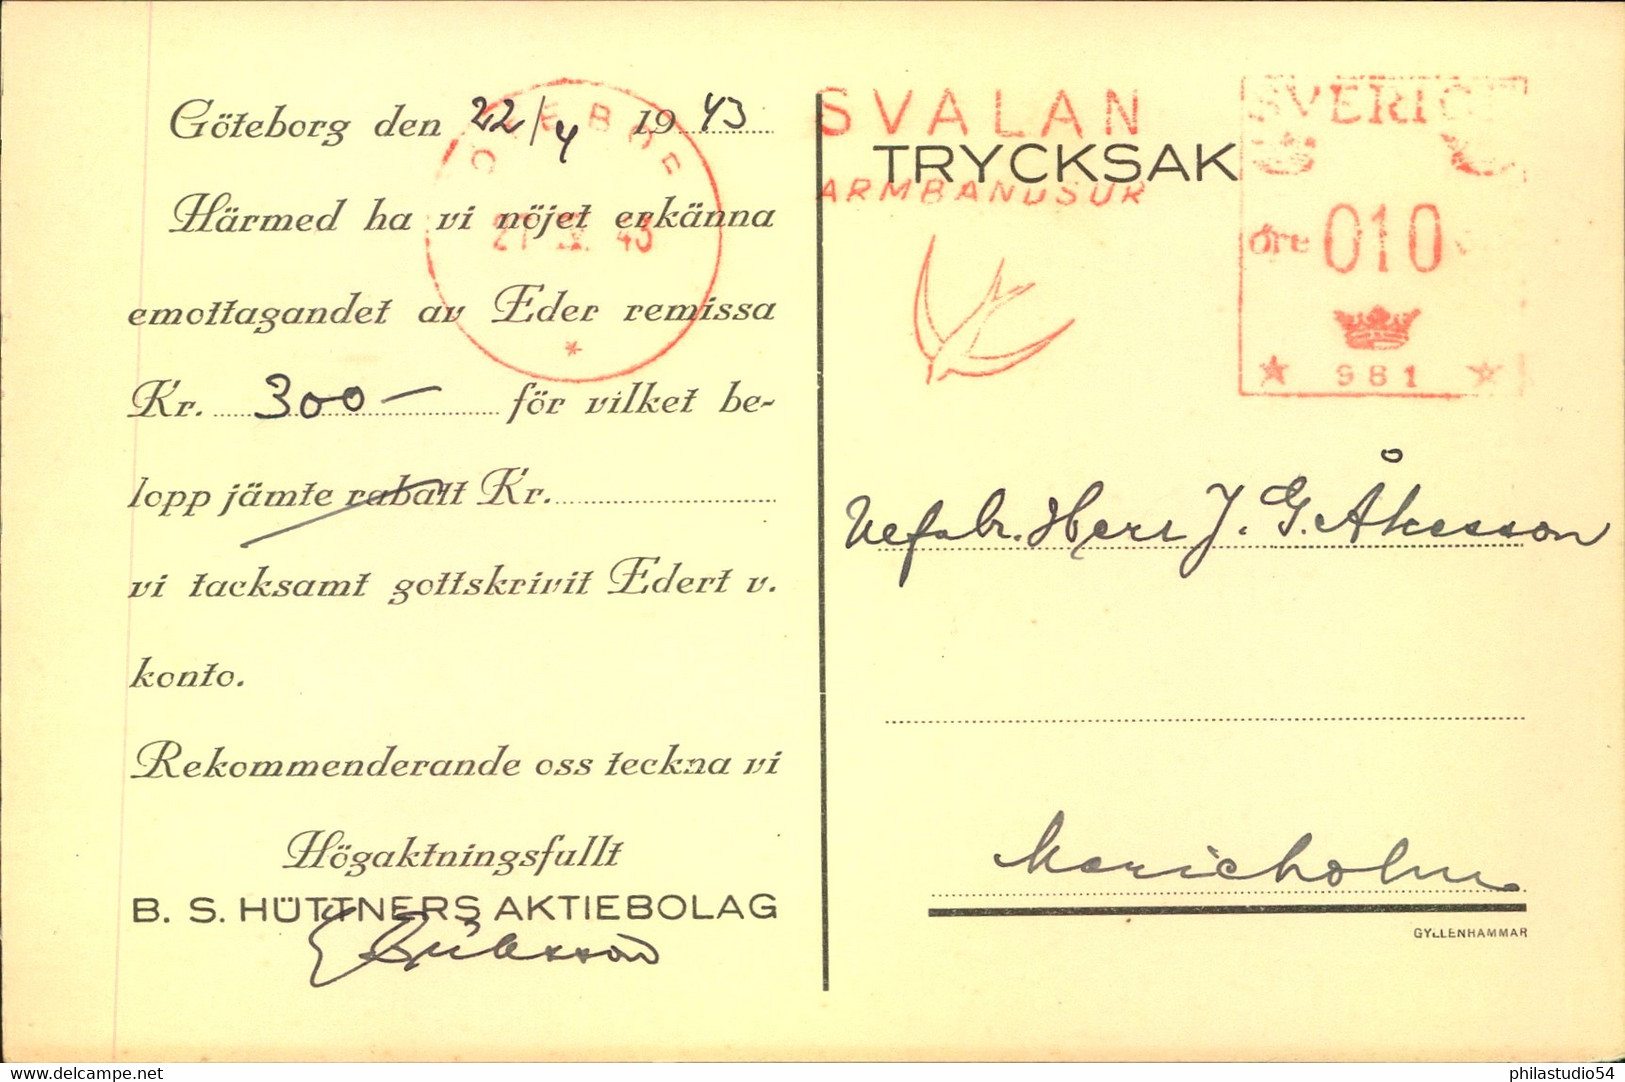 Göteborg den 22/4 1943
Härmed ha vi nöjet erkänna
emottagandet av Eder remissa
Kr. 300- för vilket be-
lopp jämte rabatt Kr.
vi tacksamt gottskrivit Edert v.
konto.
Rekommenderande oss teckna vi
Högaktningsfullt
B. S. HÜTTNERS AKTIEBOLAG
SVALAN
ARMBANDSUR
TRYCKSAK
SVERIGE
öre 010
981
Herr J. G. Åkesson
Marieholm
GYLLENHAMMAR
www.delcampe.net
philastudio54